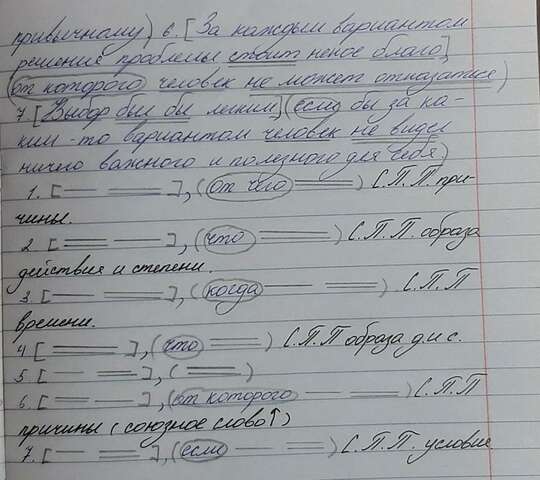 привычному) 6. [За каждым вариантом
решения проблемы стоит некое благо],
(от которого человек не может отказаться)
7. [Выбор был бы легким] (если бы за ка-
ким-то вариантом человек не видел
ничего важного и полезного для себя)
1. [ ], (от чего ) С.П.П. при-
чины.
2. [ ], (что ) С.П.П. образа
действия и степени.
3. [ ], (когда ) С.П.П
времени.
4 [ ], (что ) С.П.П образа д.и с.
5 [ ], ( )
6. [ ], (от которого ) С.П.П
причины (союзное слово↑)
7. [ ], (если ) С.П.П. условие